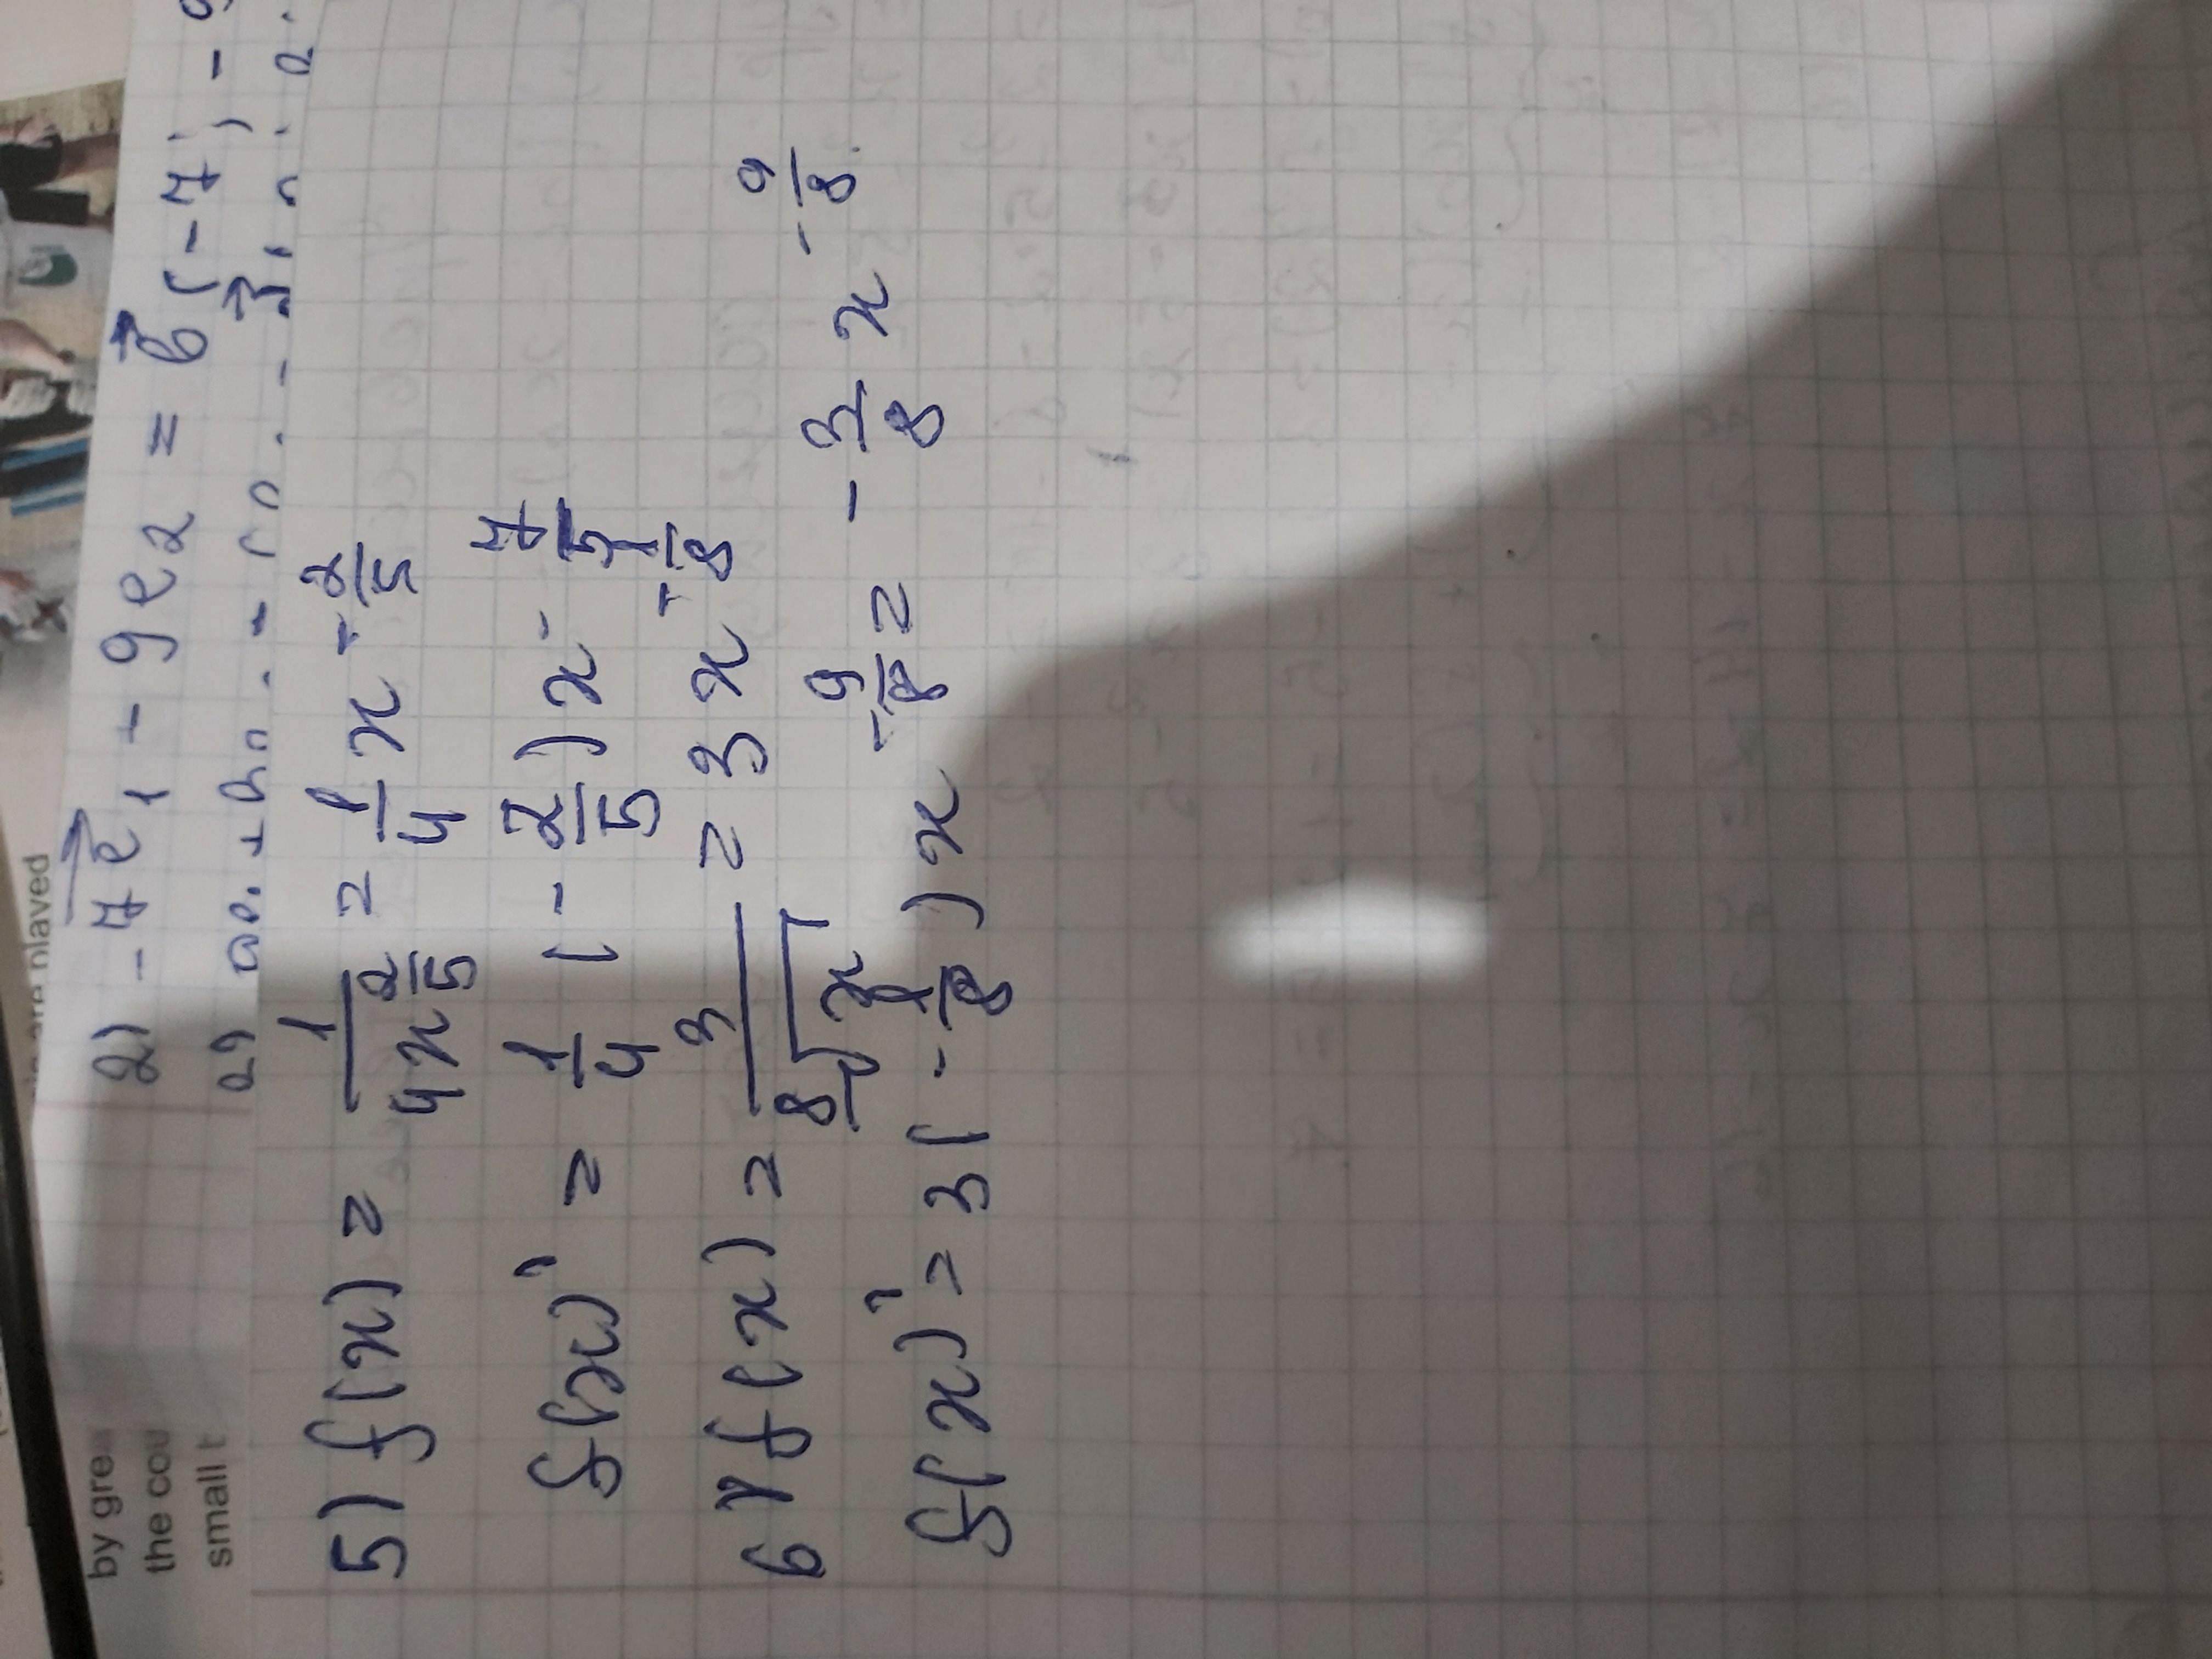 by gre
the cou
small t
2) -7e⃗₁ + 9e₂ = b⃗(-7; -9
5) f(x) = 1/(4x^(2/5)) = 1/4 x^(-2/5)
f(x)' = 1/4 (-2/5) x^(-7/5)
6) f(x) = 3/⁸√x = 3x^(-1/8)
f(x)' = 3(-1/8)x^(-9/8) = -3/8 x^(-9/8)